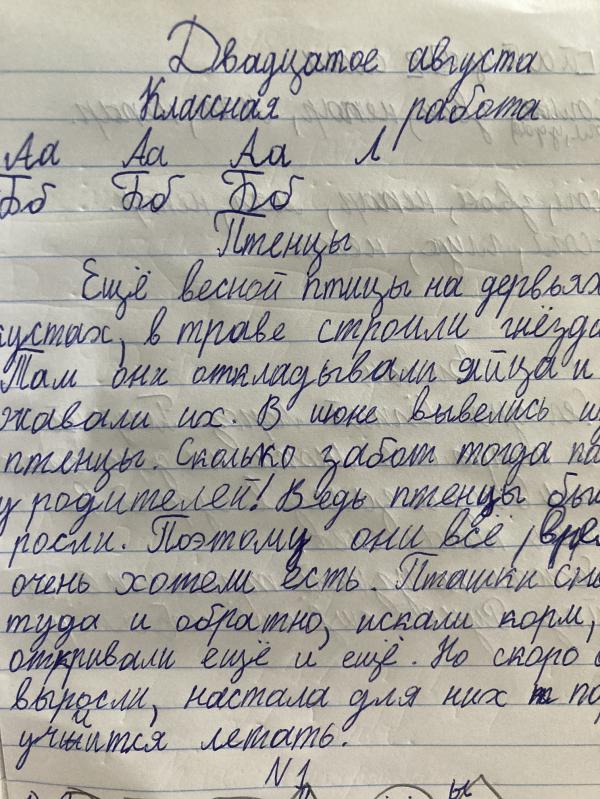 Двадцатое августа
Классная работа
Аа Аа Аа Л
Бб Бб Бб
Птенцы
Ещё весной птицы на дервьях
кустах, в траве строили гнёзда
Там они откладывали яйца и
жавали их. В июне вывелись
птенцы. Сколько забот тогда
у родителей! Ведь птенцы быс
росли. Поэтому они всё вре
очень хотели есть. Пташки
туда и обратно, искали корм,
открывали ещё и ещё. Но скоро
выросли, настала для них по
учиится летать.
N 1
ы